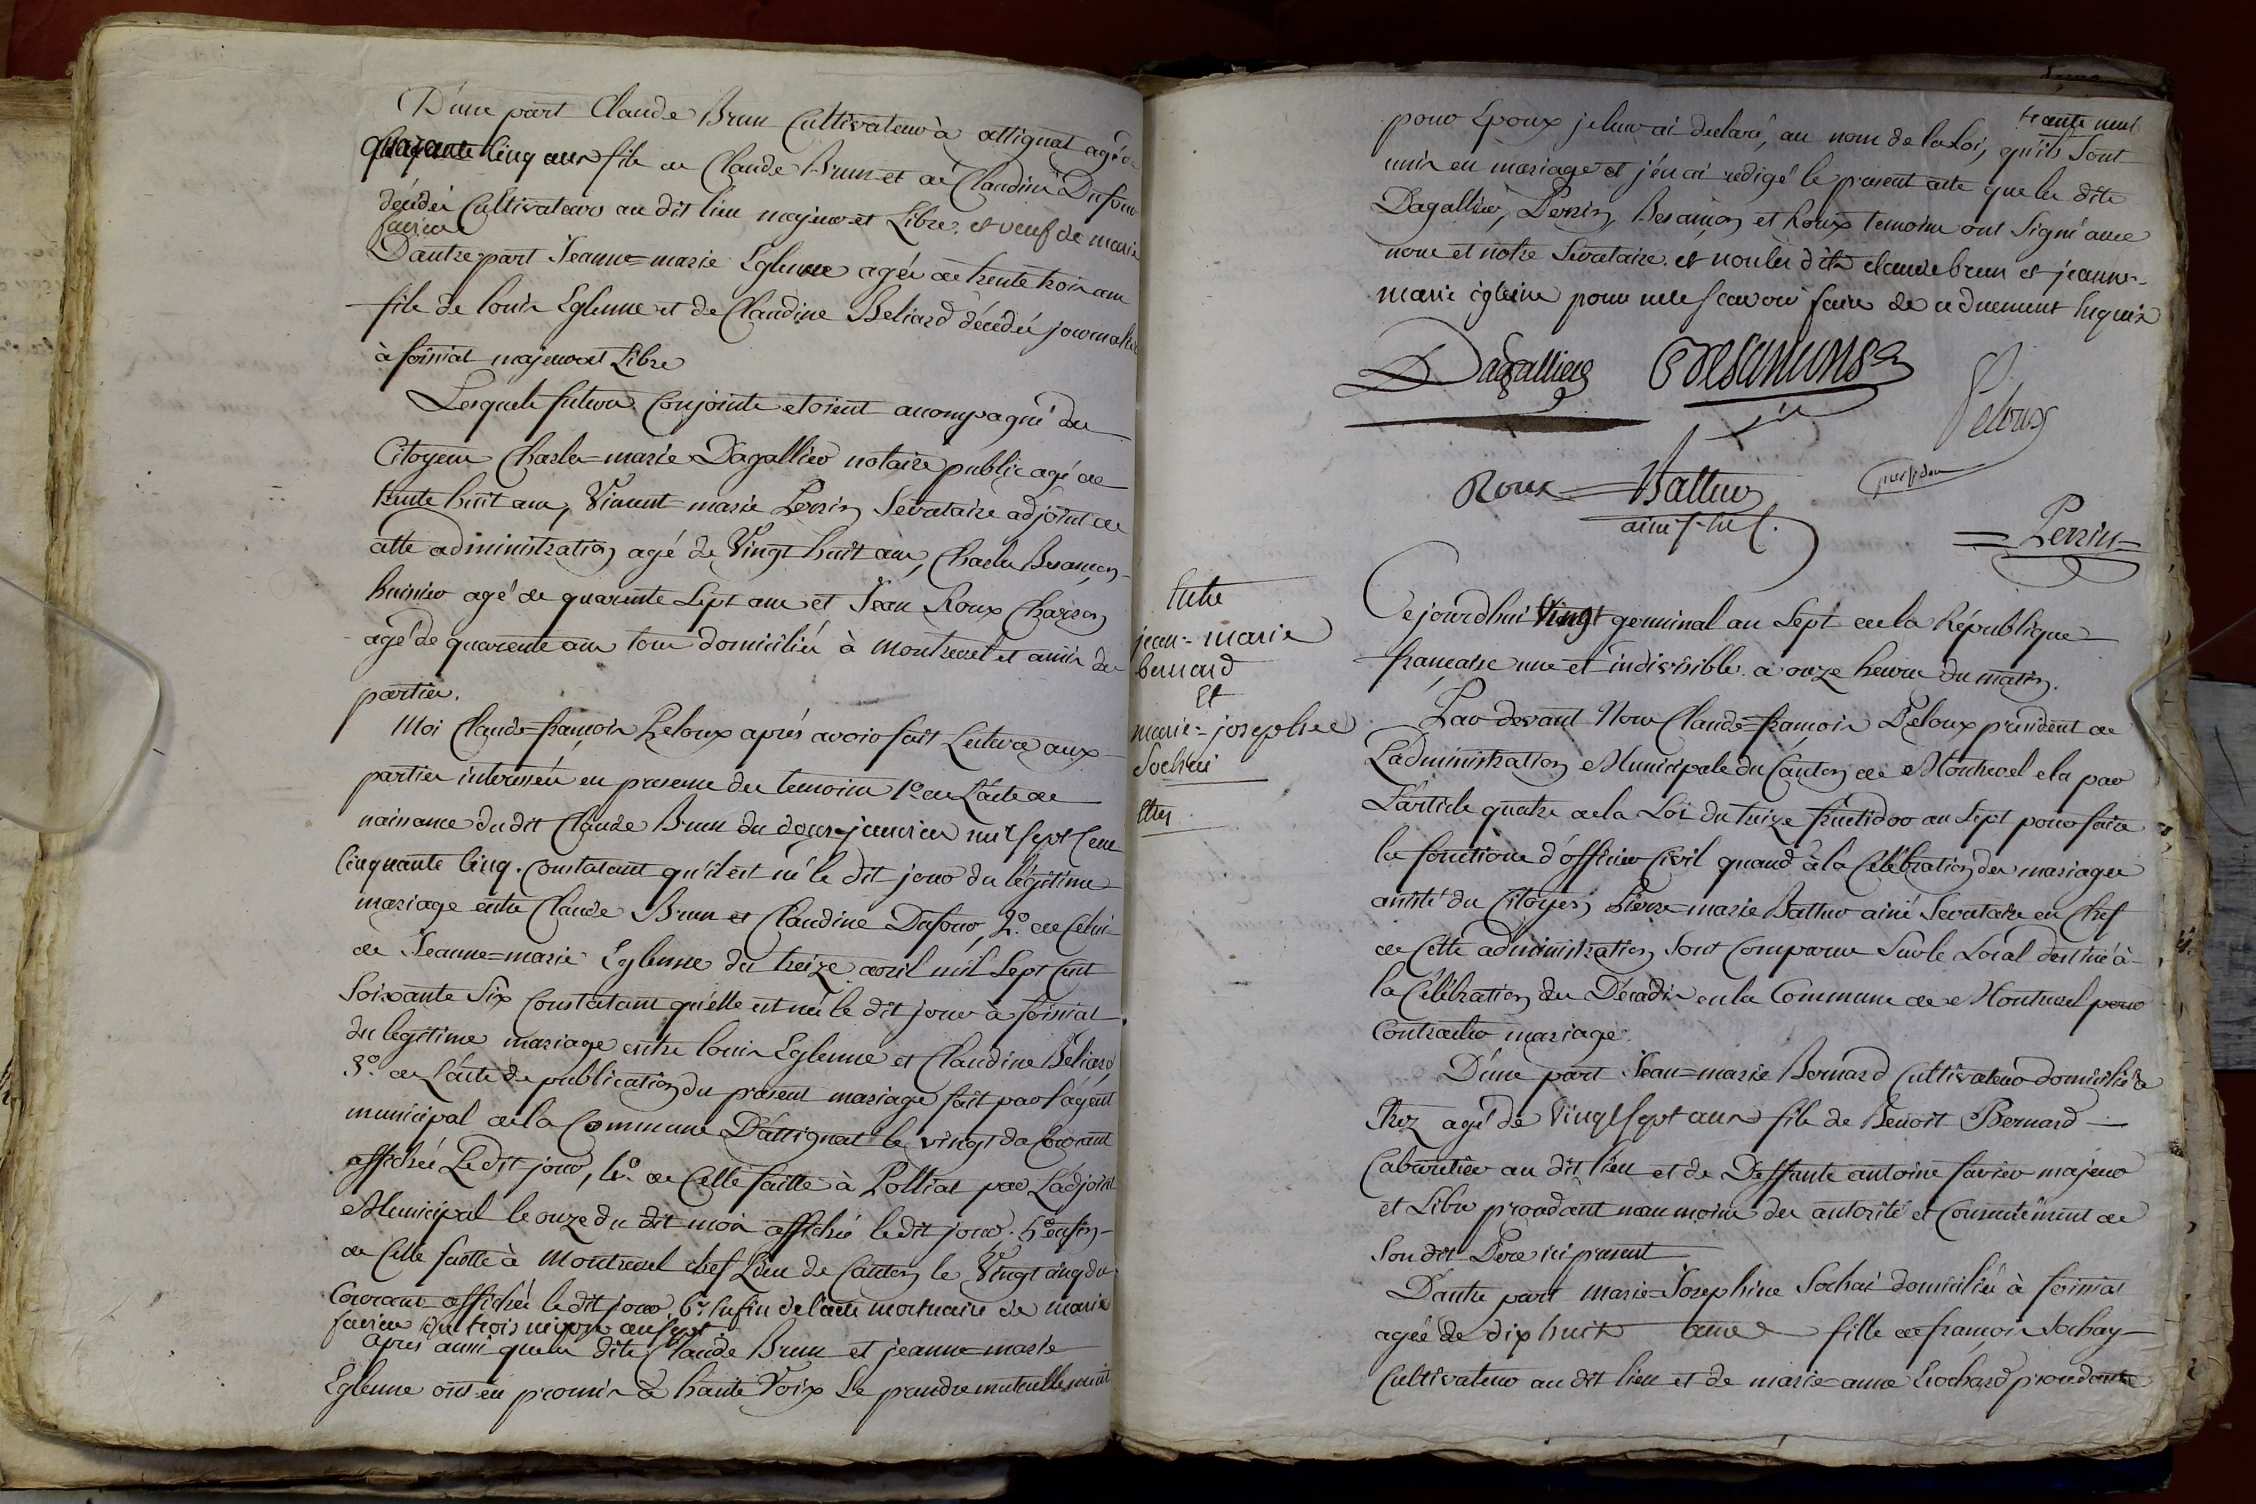 D'une part Claude Brun Cultivateur à attignat agé de
quarante Cinq ans fils de Claude Brun et de Claudine Dufour
décédés Cultivateurs au dit lieu majeur et Libre. et veuf de marie
favier
D'autre part Jeanne=marie Eglenne agée de trente trois ans
fille de louis Eglenne et de Claudine Beliard décédés journaliers
à foissiat majeure et Libre
Lesquels futurs Conjoints etoient accompagné des
Citoyens Charles=marie Dagallier notaire public agé de
trente huit ans, Vincent=marie Perrin Secretaire adjoint de
cette administration agé de Vingt huit ans, Charles Besançon
huissier agé de quarente Sept ans et Jean Roux Charron
agé de quarente ans tous domiciliés à Montrevel et amis des
parties.
Moi Claude=françois Peloux aprés avoir fait Lecture aux
parties interessées en presence des temoins 1.º de L'acte de
naissance du dit Claude Brun du douze janvier mil sept Cent
Cinquante Cinq. Constatant qu'il est né le dit jour du légitime
mariage entre Claude Brun et Claudine Dufour, 2.º de Celui
de Jeanne=marie Eglenne du treize avril mil Sept Cent
Soixante Six Constatant qu'elle est née le dit jour à foissiat
du legitime mariage entre louis Eglenne et Claudine Béliard
3.º de L'acte de publication du présent mariage fait par l'agent
municipal de la Commune D'attignat le vingt du Courant
affichée Le dit jour, 4.º de Celle faitte à Polliat par L'adjoint
Municipal le onze du dit mois affichée le dit jour. 5.º enfin
de Celle faitte à Montrevel chef Lieu de Canton le Vingt cinq du
Courant affichée le dit jour, 6.º Enfin de l'acte mortuaire de marie
favier du trois nivose an sept
Après aussi que les dits Claude Brun et jeanne=marie
Eglenne ont eu promis à haute Voix de se prendre mutuellement
trante neuf
pour Epoux je leur ai declaré, au nom de la Loi, qu'ils Sont
unis en mariage et j'en ai redigé le present acte que les dits
Dagallier, Perrin, Besançon et Roux temoins ont Signé avec
nous et notre Secretaire. et non les dits claude brun et jeanne=
marie eglenne pour ne le scavoir faire de ce duement Enquis
Dagallier Besançons
Peloux
president
Roux Battur
ainé S. ch.f.
Perrin
Entre
jean=marie
bernard
Et
marie=josephe
Sochai
Cejourdhui Vingt germinal an Sept de la République
française une et indivisible à onze heures du matin.
Par devant Nous Claude=françois Peloux président de
L'administration Municipale du Canton de Montrevel elu par
L'article quatre de la Loi du treize fructidor an Sept pour faire
les fonctions d'officier Civil quand à la Célébration des mariages
assisté du Citoyen Pierre=marie Battur ainé Secretaire en Chef
de Cette administration Sont Comparus Sur le Local destiné à
la Célébration des Décadis en la Commune de Montrevel pour
Contracter mariage.
D'une part Jean=marie Bernard Cultivateur domicilié à
agé de Vingt sept ans fils de Benoit Bernard
Cabaretier au dit lieu et de Deffunte antoine favier majeur
et Libre procédant neanmoins des autorité et Consentement de
Son dit Pere ici present
D'autre part Marie=Josephine Sochai domiciliée à foissiat
agée de dix huit ans fille de françois Sochay
Cultivateur au dit lieu et de marie=anne Brochard procédante